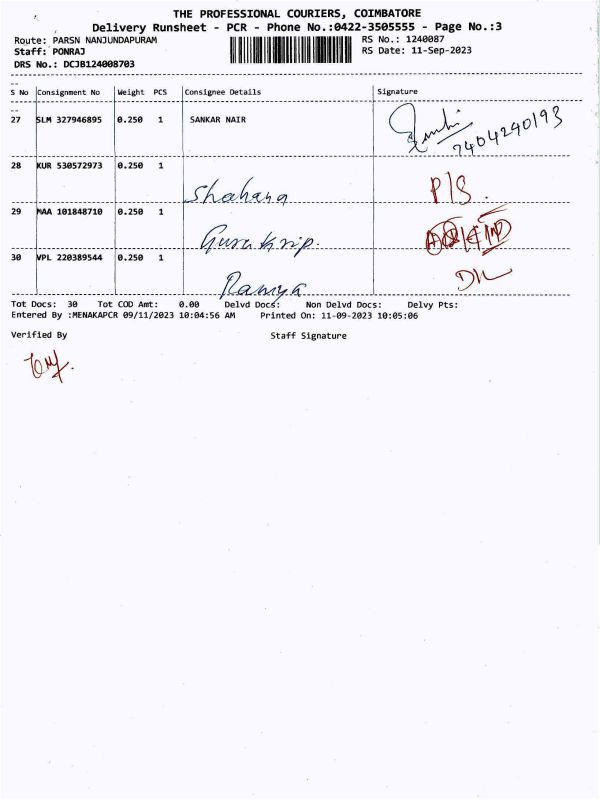 THE PROFESSIONAL COURIERS, COIMBATORE
Delivery Runsheet - PCR - Phone No.:0422-3505555 - Page No.:3
Route: PARSN NANJUNDAPURAM RS No.: 1240087
Staff: PONRAJ RS Date: 11-Sep-2023
DRS No.: DCJB124008703
S No Consignment No Weight PCS Consignee Details Signature
27 SLM 327946895 0.250 1 SANKAR NAIR
7404240193
28 KUR 530572973 0.250 1
Shahana P/S.
29 MAA 101848710 0.250 1
30 VPL 220389544 0.250 1
Ramya
Tot Docs: 30 Tot COD Amt: 0.00 Delvd Docs: Non Delvd Docs: Delvy Pts:
Entered By :MENAKAPCR 09/11/2023 10:04:56 AM Printed On: 11-09-2023 10:05:06
Verified By Staff Signature